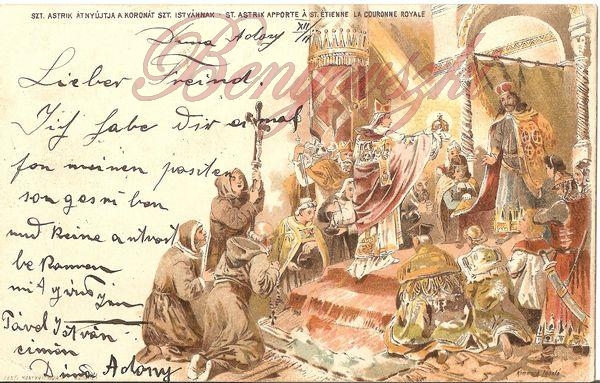 SZT. ASTRIK ÁTNYÚJTJA A KORONÁT SZT. ISTVÁNNAK - ST. ASTRIK APPORTE À ST. ÉTIENNE LA COURONNE ROYALE
Duna Adony XII/11
Benyovszki
Lieber Freind.
Ich habe Dir einmal
fon meinen
und keine antvort
be kommen
mit
Pável István
cimen
Duna Adony